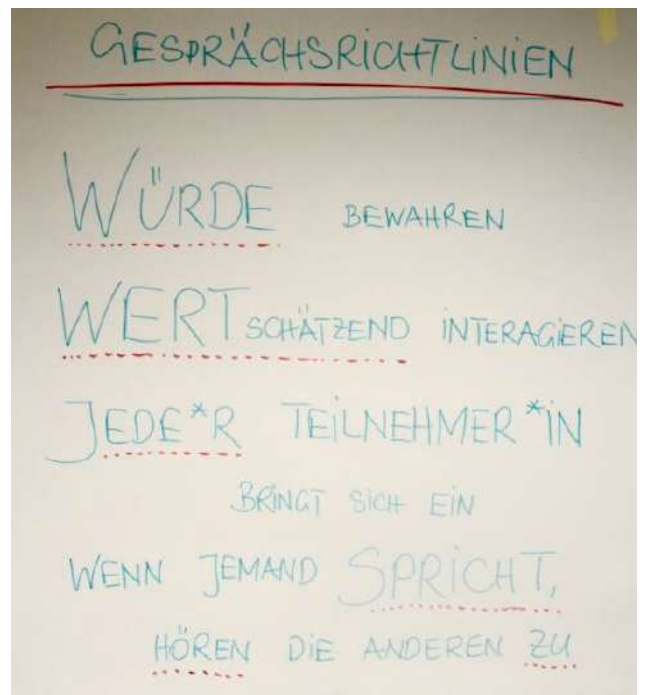 GESPRÄCHSRICHTLINIEN
WÜRDE BEWAHREN
WERTSCHÄTZEND INTERAGIEREN
JEDE*R TEILNEHMER*IN
BRINGT SICH EIN
WENN JEMAND SPRICHT,
HÖREN DIE ANDEREN ZU